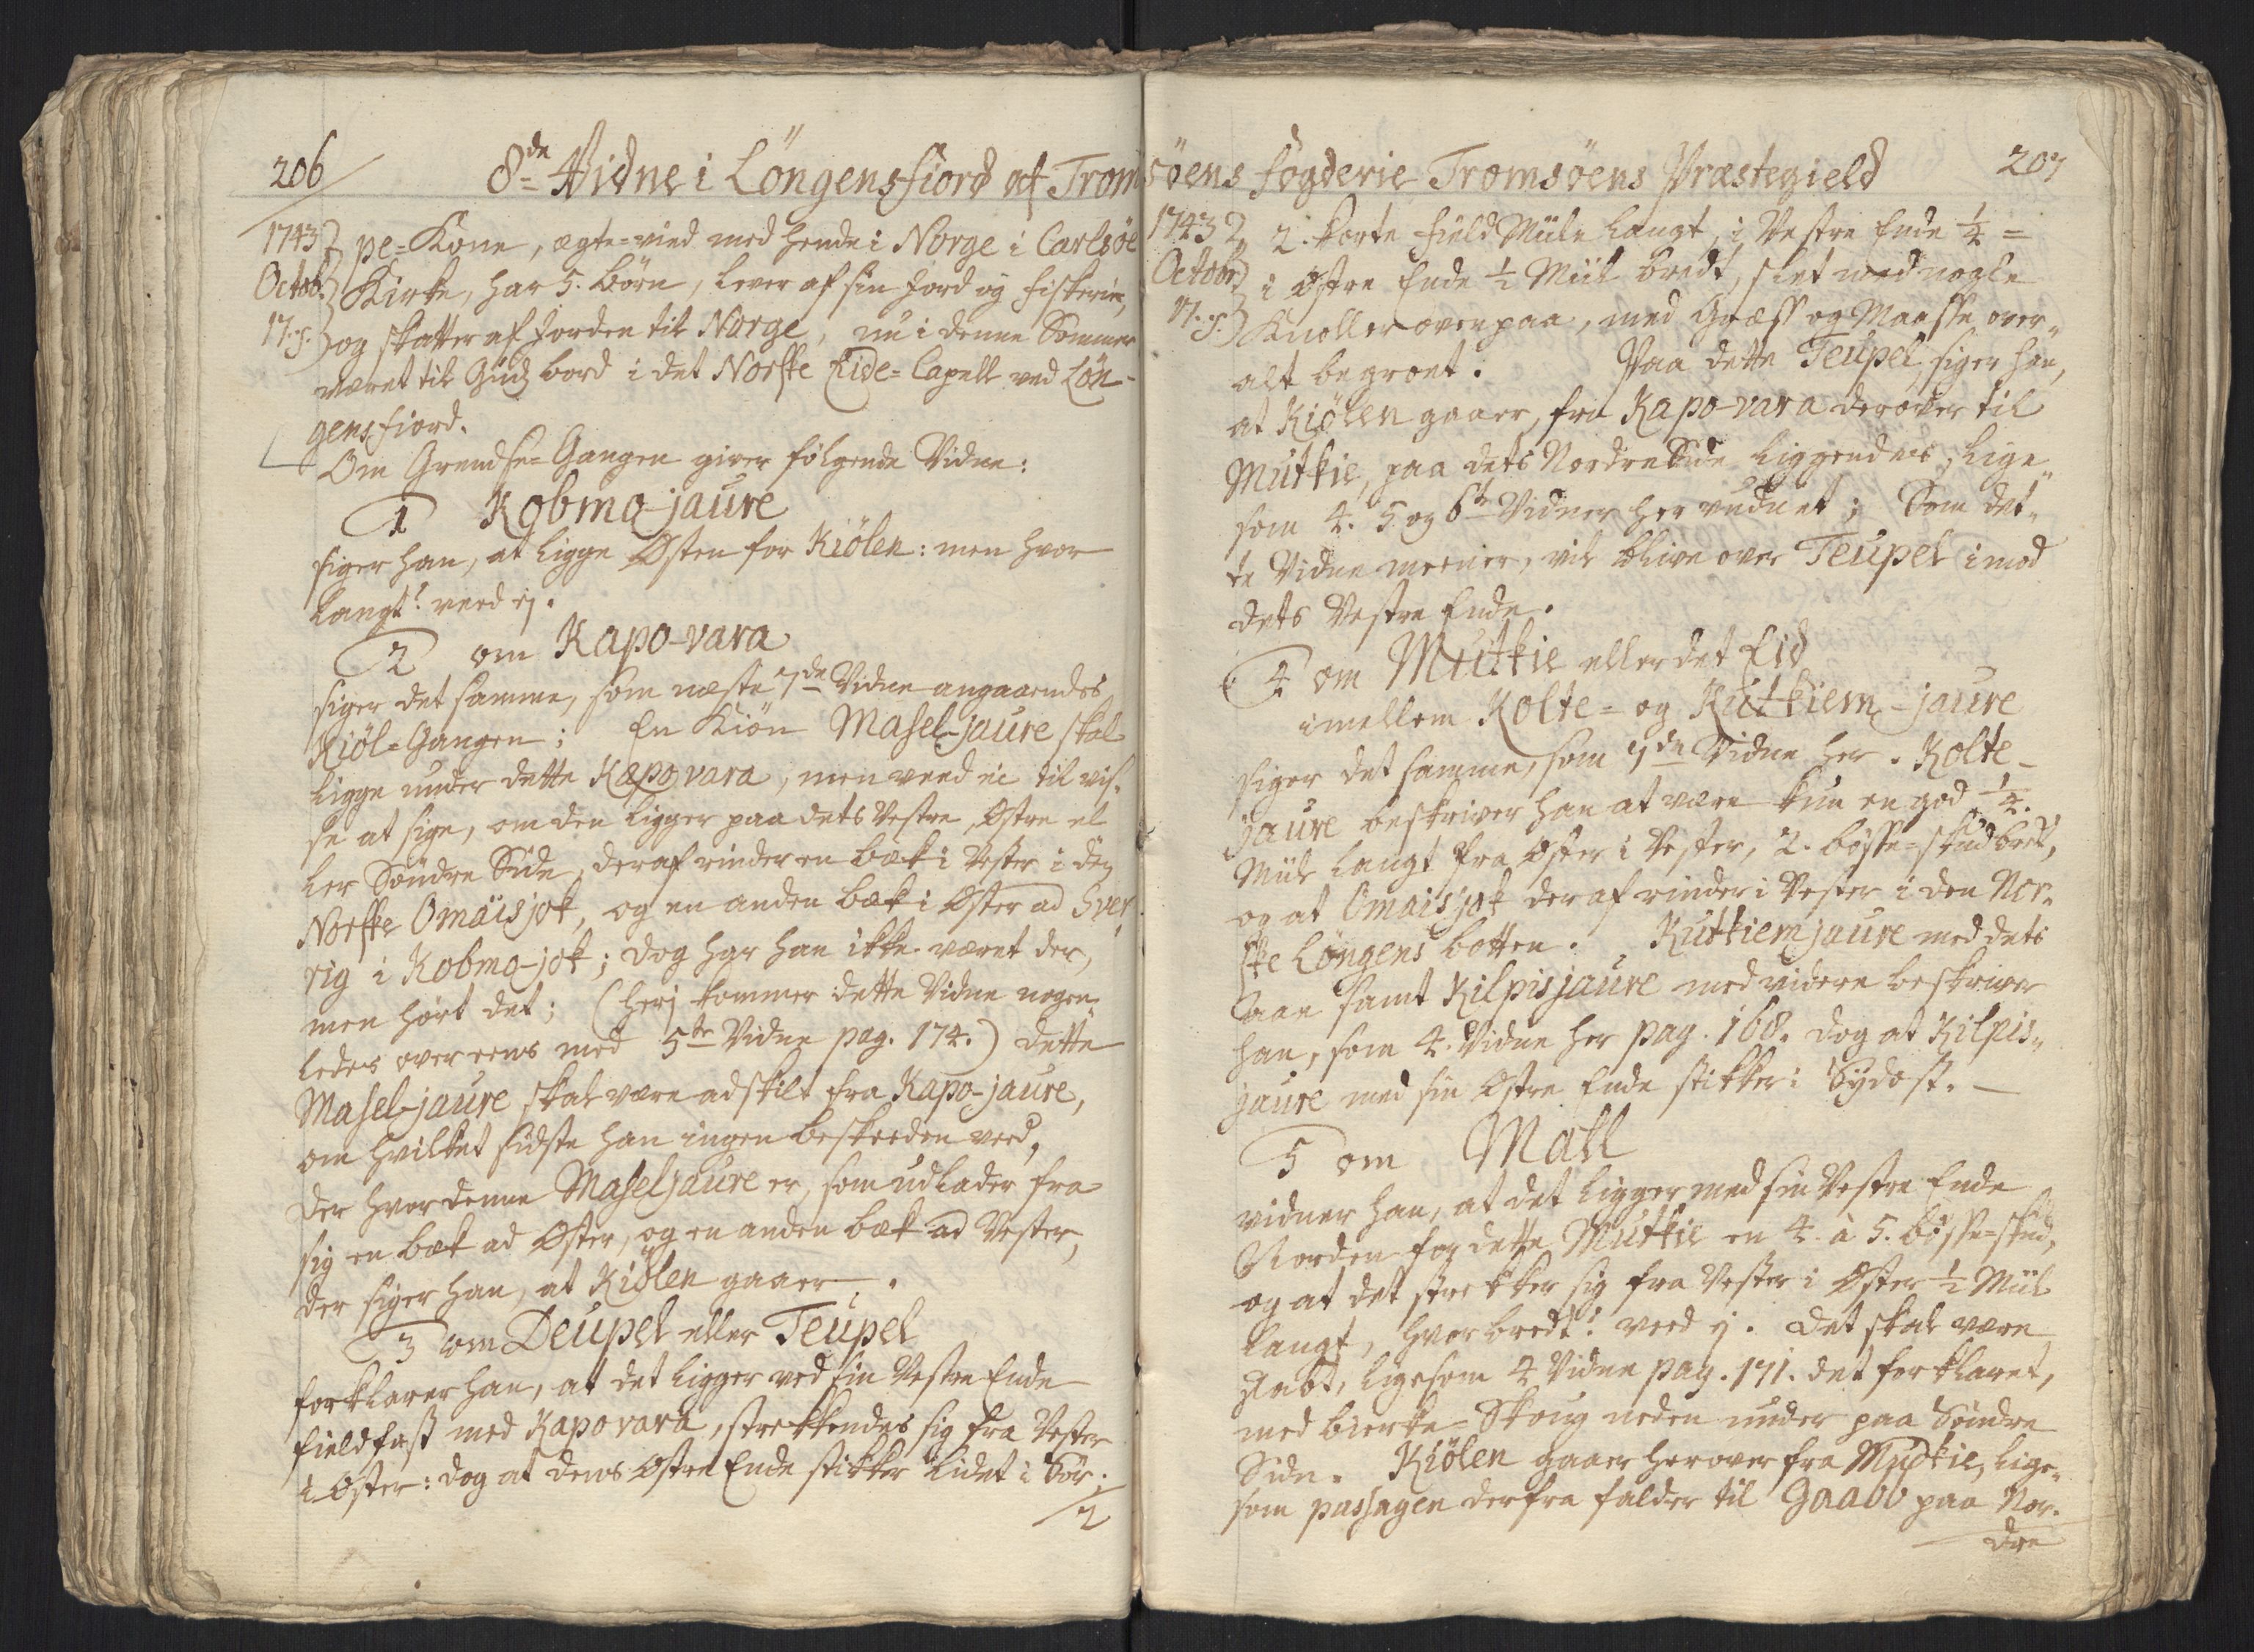 206
8de Vidne i Löngensfiord af Trom
1743
Octob.
17. s.
pe-Kone, ægte-vied med hende i Norge i Carlsöe
Kirke, har 5. börn, lever af sin Jord og Fiskerie,
og skatter af Jorden til Norge, nu i denne Sommer
været til Gudz bord i det Norske Eide-Capell ved Lön-
gensfiord.
Om Grendse-Gangen giver fölgende Vidne:
1 Kobmo-jaure
siger han, at ligge Østen for Kiölen: men hvor
langt? veed ej.
2 om Kapo-vara
siger det samme, som næste 7de Vidne angaaendes
Kiöl-Gangen; En Kiön Masel-jaure skal
ligge under dette Kapovara, men veed ei til vis-
se at sige, om den ligger paa dets Vestre, Østre el
ler Söndre Side, deraf rinder en bæk i Vester i den
Norske Omaisjok, og en anden bæk i Øster ad Sver
rig i Kobmo-jok; dog har han ikke været der,
men hört det; (herj kommer dette Vidne nogen-
ledes overeens med 5te Vidne pag. 174.) dette
Masel-jaure skal være adskilt fra Kapo-jaure,
om hvilket sidste han ingen beskeeden veed,
der hvor denne Maseljaure er, som udlader fra
sig en bæk ad Øster, og en anden bæk ad Vester,
der siger han, at Kiölen gaaer.
3 om Deupel eller Teupel
forklarer han, at det ligger ved sin Vestre Ende
fieldfast med Kapovara, strekkendes sig fra Vester
i Øster: dog at dens Østre Ende stikker lidet i Sör;
2
söens Fogderie Tromsöens Præstegield
207
1743
Octobr
17. s.
2. korte Field Miile langt, i Vestre Ende 1/4 =
i Østre Ende 1/2 Miil bredt, slet med nogle
Knoller ovenpaa, med Græss og Maasse over-
alt begroet. Paa dette Teupel siger han,
at Kiölen gaaer, fra Kapo-vara derover til
Mutkie, paa dets Nordre Side liggendes, lige
som 4. 5 og 6te Vidner her vudnet; Som det-
te Vidne meener, vil blive over Teupel imod
dets Vestre Ende.
4 om Mutkie eller det Eid
imellem Kolte- og Kutkiem-jaure
siger det samme, som 7de Vidne her. Kolte-
jaure beskriver han at være kun en god 1/4.
Miil langt fra Øster i Vester, 2. bösse-skud bredt,
og at Omaisjok deraf rinder i Vester i den Nor-
ske Löngens botten. Kutkiemjaure med dets
Aae samt Kilpisjaure med videre beskriver
han, som 4. Vidne her pag. 168. dog at Kilpis-
jaure med sin Østre Ende stikker i Sydost.
5 om Mall
vidner han, at det ligger med sin Vestre Ende
Norden for dette Mutkie en 4 à 5. bösse-skud,
og at det strekker sig fra Vester i Øster 1/2 Miil
langt, hvor bredt? veed ej. det skal være
Gabt, ligesom 4 Vidne pag. 171. det forklaret,
med bierke-Skoug neden under paa Söndre
Side. Kiölen gaaer herover fra Mutkie, lige-
som passagen derfra falder til Gaabb paa Nor-
dre